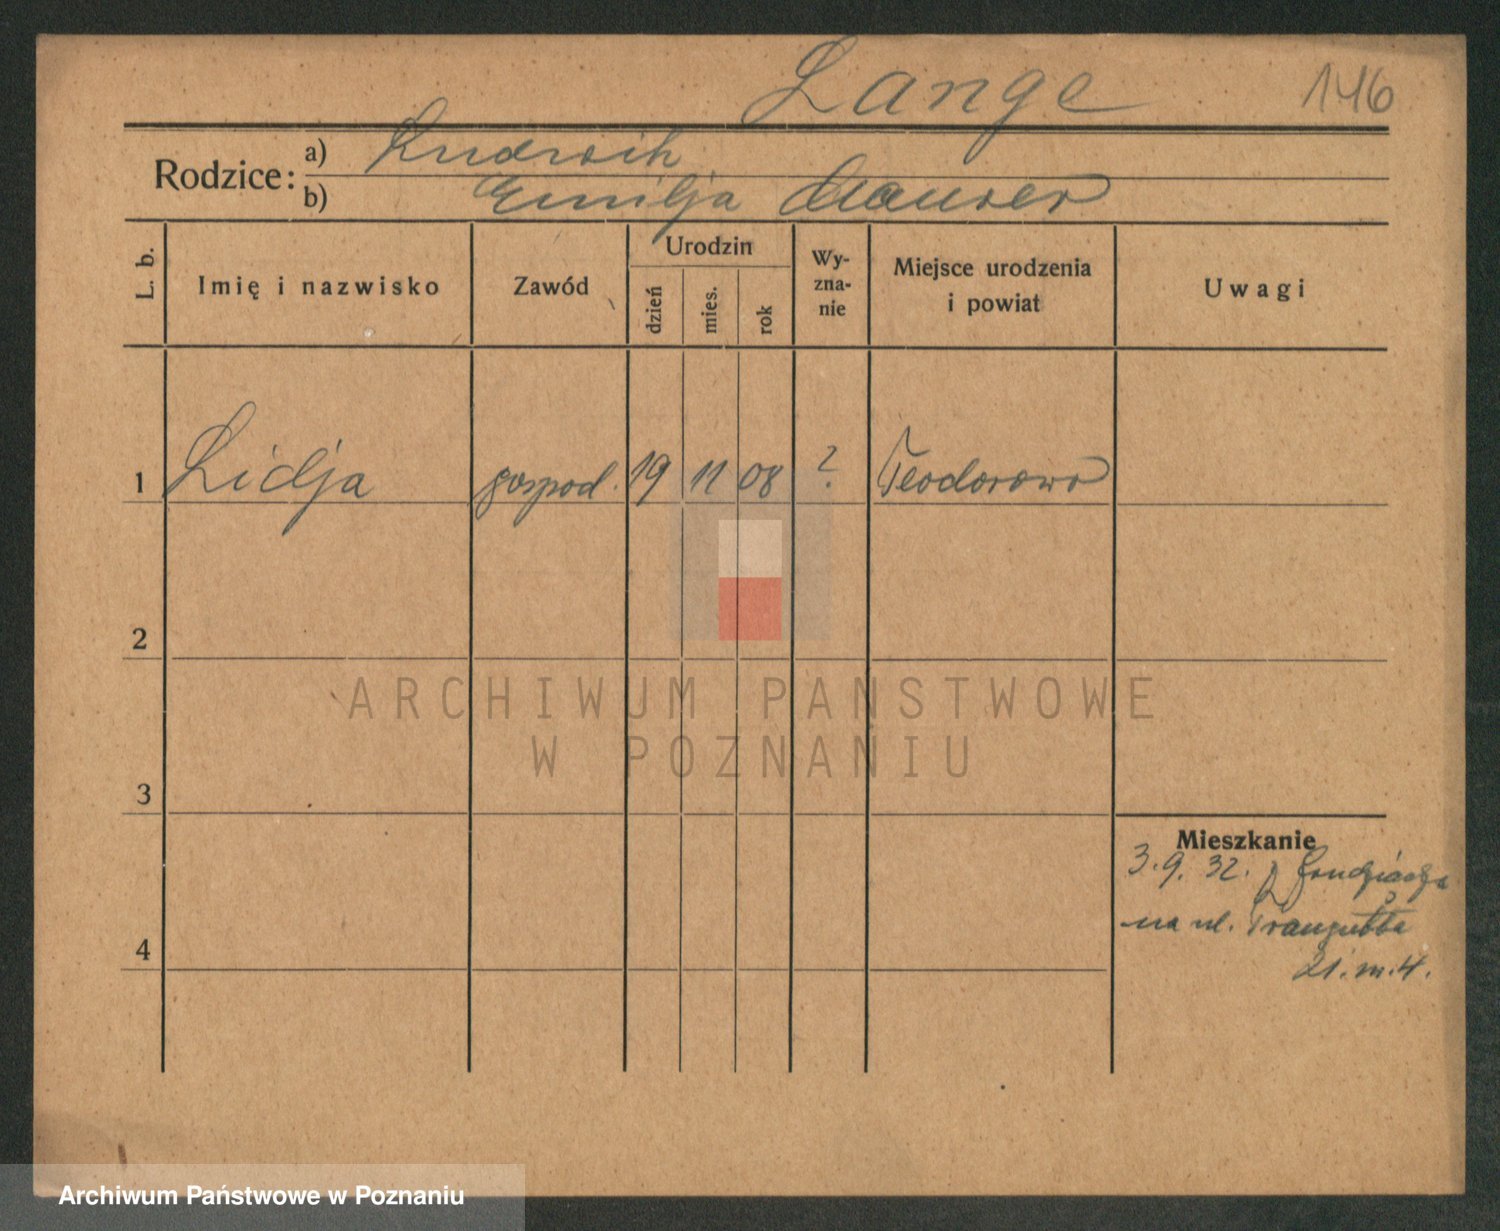 Lange 146
Rodzice: a) Ludwik
b) Emilja Maurer
L. b.
Imię i nazwisko
Zawód
Urodzin
dzień
mies.
rok
Wy-
zna-
nie
Miejsce urodzenia
i powiat
Uwagi
1 Lidja gospod. 19 11 08 ? Teodorowo
2
3
4
Mieszkanie
3.9.32. z
na ul. Traugutta
21. m. 4.
ARCHIWUM PAŃSTWOWE
W POZNANIU
Archiwum Państwowe w Poznaniu